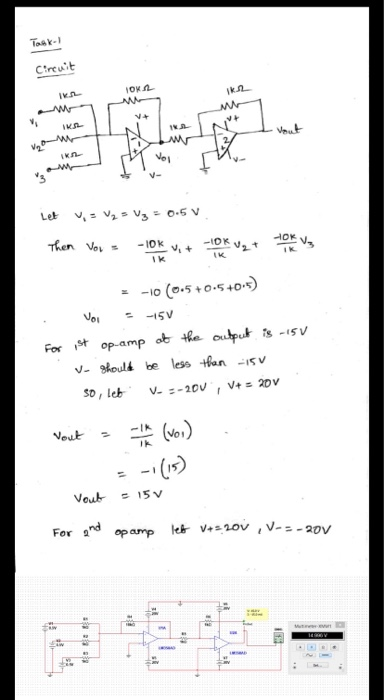 Task-1
Circuit
1kΩ
10kΩ
1kΩ
V1
1kΩ
V+
V+
V2
1kΩ
1
1kΩ
2
Vout
V3
V01
V-
V-
Let V1 = V2 = V3 = 0.5 V
Then V01 = -10k/1k V1 + -10k/1k V2 + -10k/1k V3
= -10 (0.5+0.5+0.5)
V01 = -15V
For 1st op-amp at the output is -15V
V- should be less than -15V
so, let V- = -20V, V+ = 20V
Vout = -1k/1k (V01)
= -1(15)
Vout = 15V
For 2nd opamp let V+=20V, V-=-20V